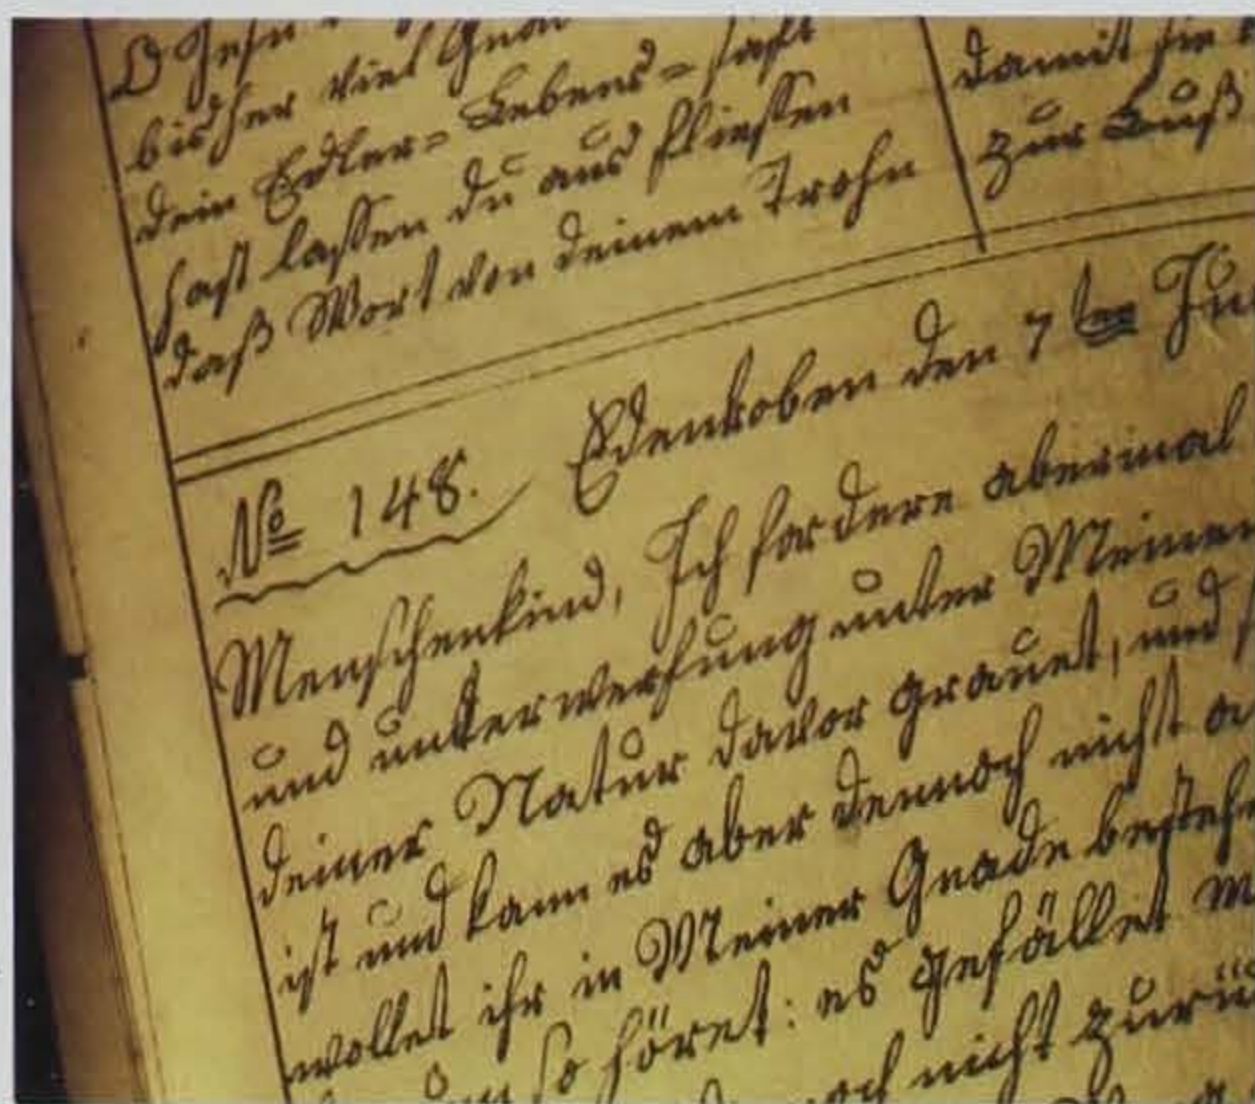 O Jesu
bisher viel Gnad
dein Edler= Lebens=saft
hast lassen du aus fliessen
daß Wort von deinem Trohn
damit sie
zur Buß
No 148. Edenkoben den 7ten Ju
Menschenkind, Ich fordere abermal
und unterwerfung unter Meinen
deiner Natur davor grauet, und
ist und kann es aber dennoch nicht
wollet ihr in Meiner Gnade besteh
so höret: es gefället
nicht zurü